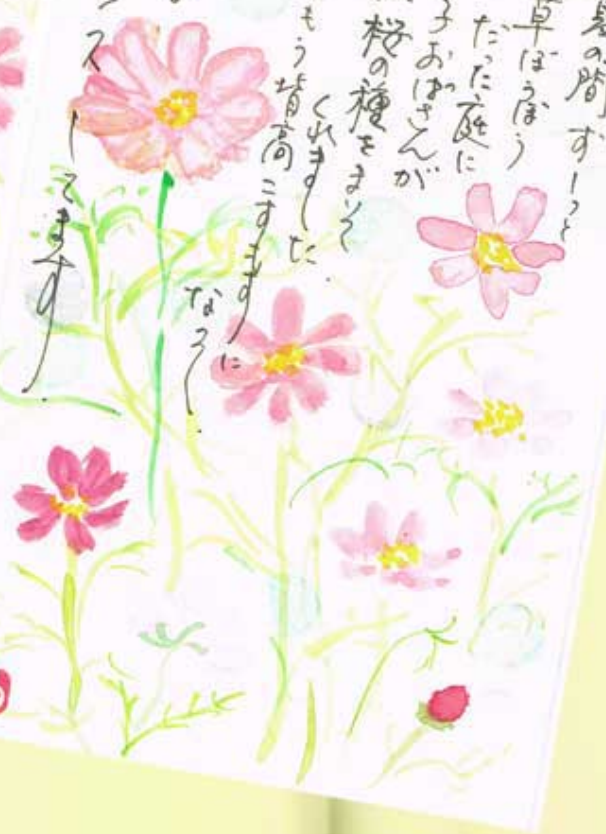 の間 ずーっと
草ぼうぼう
だった庭に
子おばさんが
桜の種をまいて
くれました.
もう背高
に
なって
ス
てます